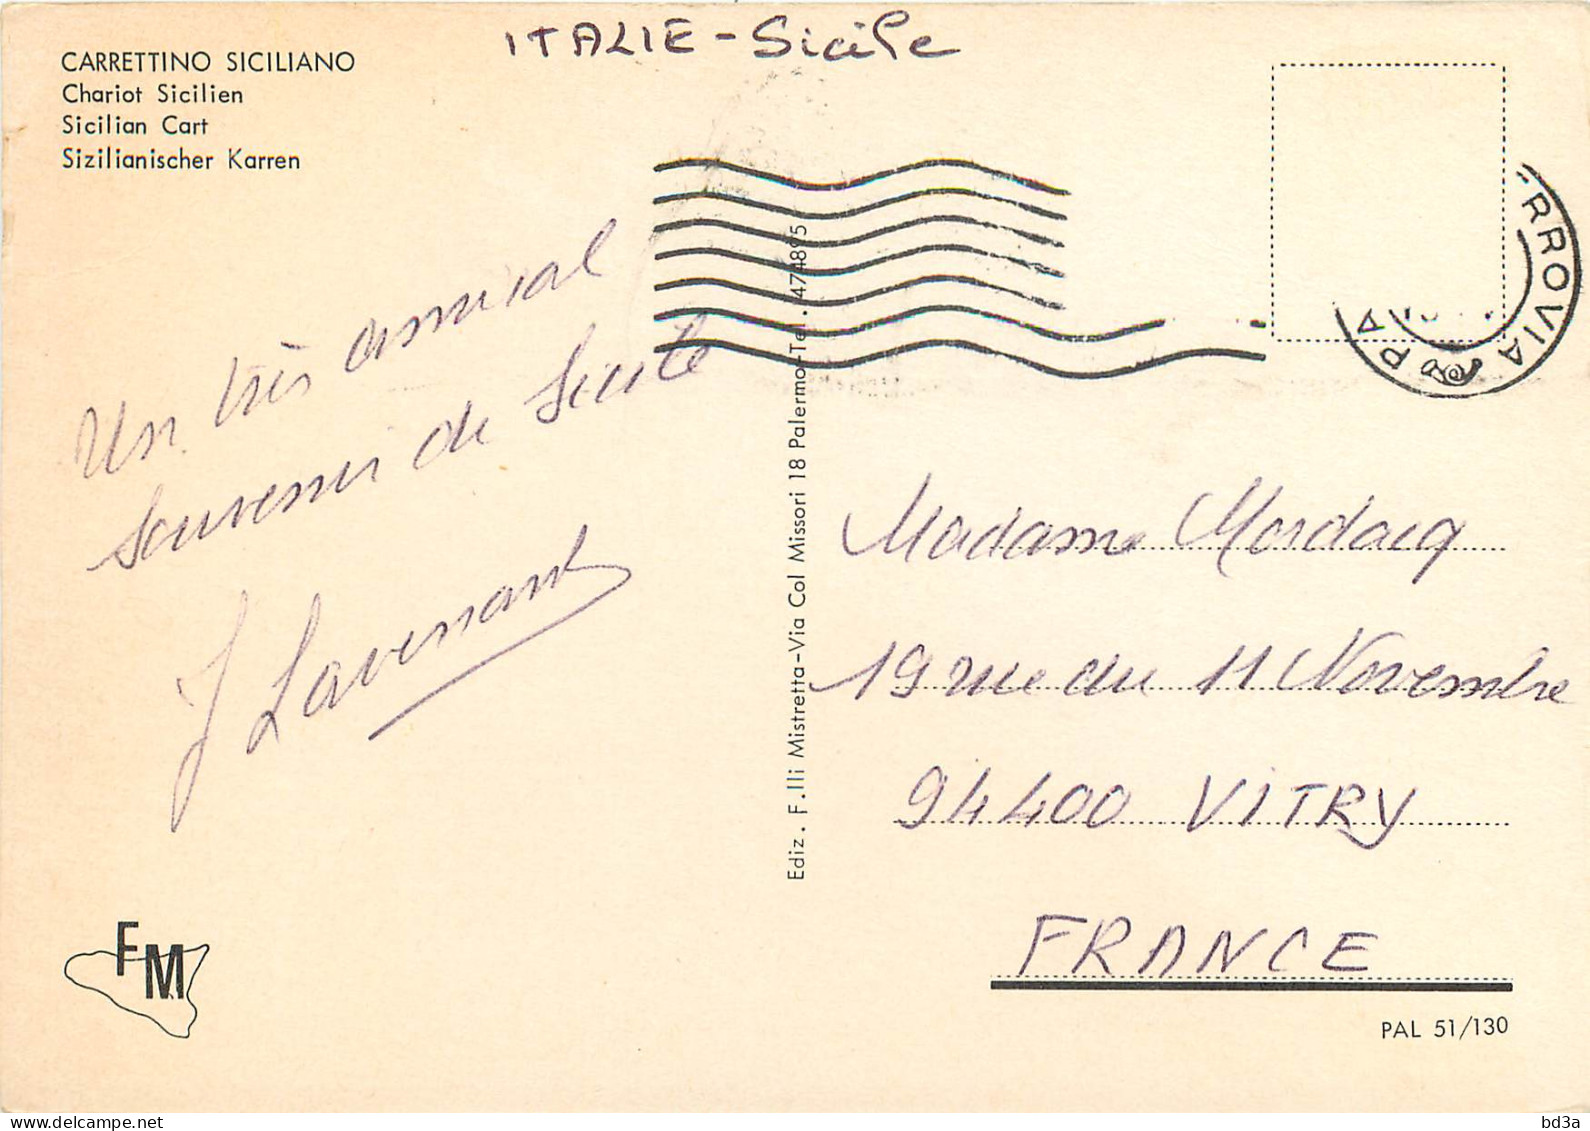 ITALIE - Sicile
CARRETTINO SICILIANO
Chariot Sicilien
Sicilian Cart
Sizilianischer Karren
Un très amical
souvenir de Sicile
J Lavenant
Ediz. F.lli Mistretta-Via Col Missori 18 Palermo-Tel. 474895
RROVIA
PA
Madame Mordacq
19 rue du 11 Novembre
94400 VITRY
FRANCE
FM
PAL 51/130
delcampe.net
bd3a